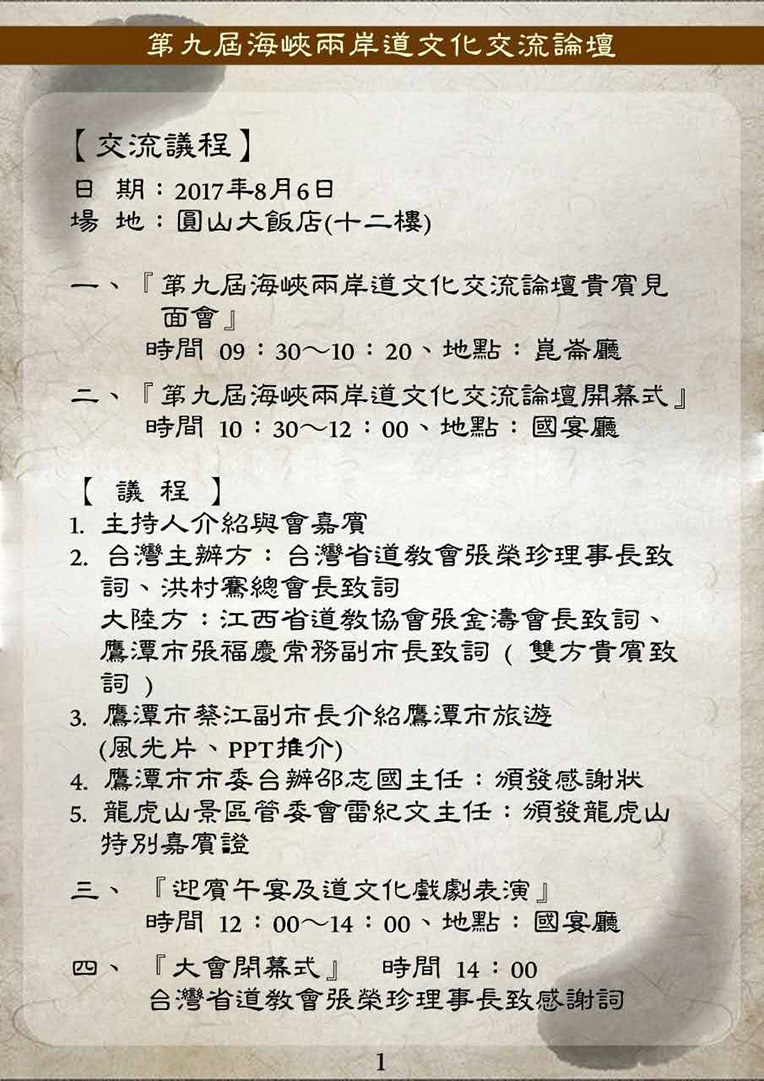 第九屆海峽兩岸道文化交流論壇
【交流議程】
日 期：2017年8月6日
場 地：圓山大飯店(十二樓)
一、『第九屆海峽兩岸道文化交流論壇貴賓見
面會』
時間 09：30～10：20、地點：崑崙廳
二、『第九屆海峽兩岸道文化交流論壇開幕式』
時間 10：30～12：00、地點：國宴廳
【 議 程 】
1. 主持人介紹與會嘉賓
2. 台灣主辦方：台灣省道教會張榮珍理事長致
詞、洪村騫總會長致詞
大陸方：江西省道教協會張金濤會長致詞、
鷹潭市張福慶常務副市長致詞 ( 雙方貴賓致
詞 )
3. 鷹潭市蔡江副市長介紹鷹潭市旅遊
(風光片、PPT推介)
4. 鷹潭市市委台辦邵志國主任：頒發感謝狀
5. 龍虎山景區管委會雷紀文主任：頒發龍虎山
特別嘉賓證
三、 『迎賓午宴及道文化戲劇表演』
時間 12：00～14：00、地點：國宴廳
四、 『大會閉幕式』 時間 14：00
台灣省道教會張榮珍理事長致感謝詞
1